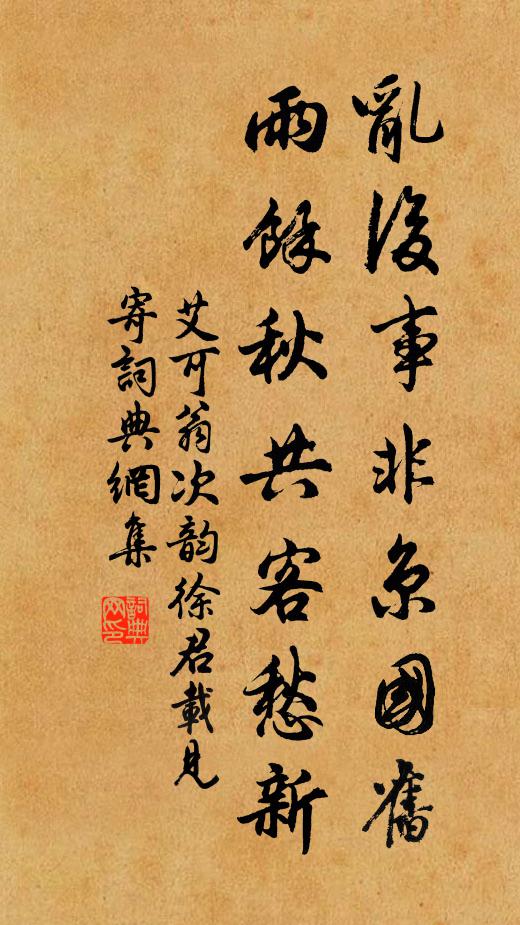 亂後事非京國舊
雨餘秋共客愁新
艾可翁次韵徐君載見
寄詞典網集
詞典
网印